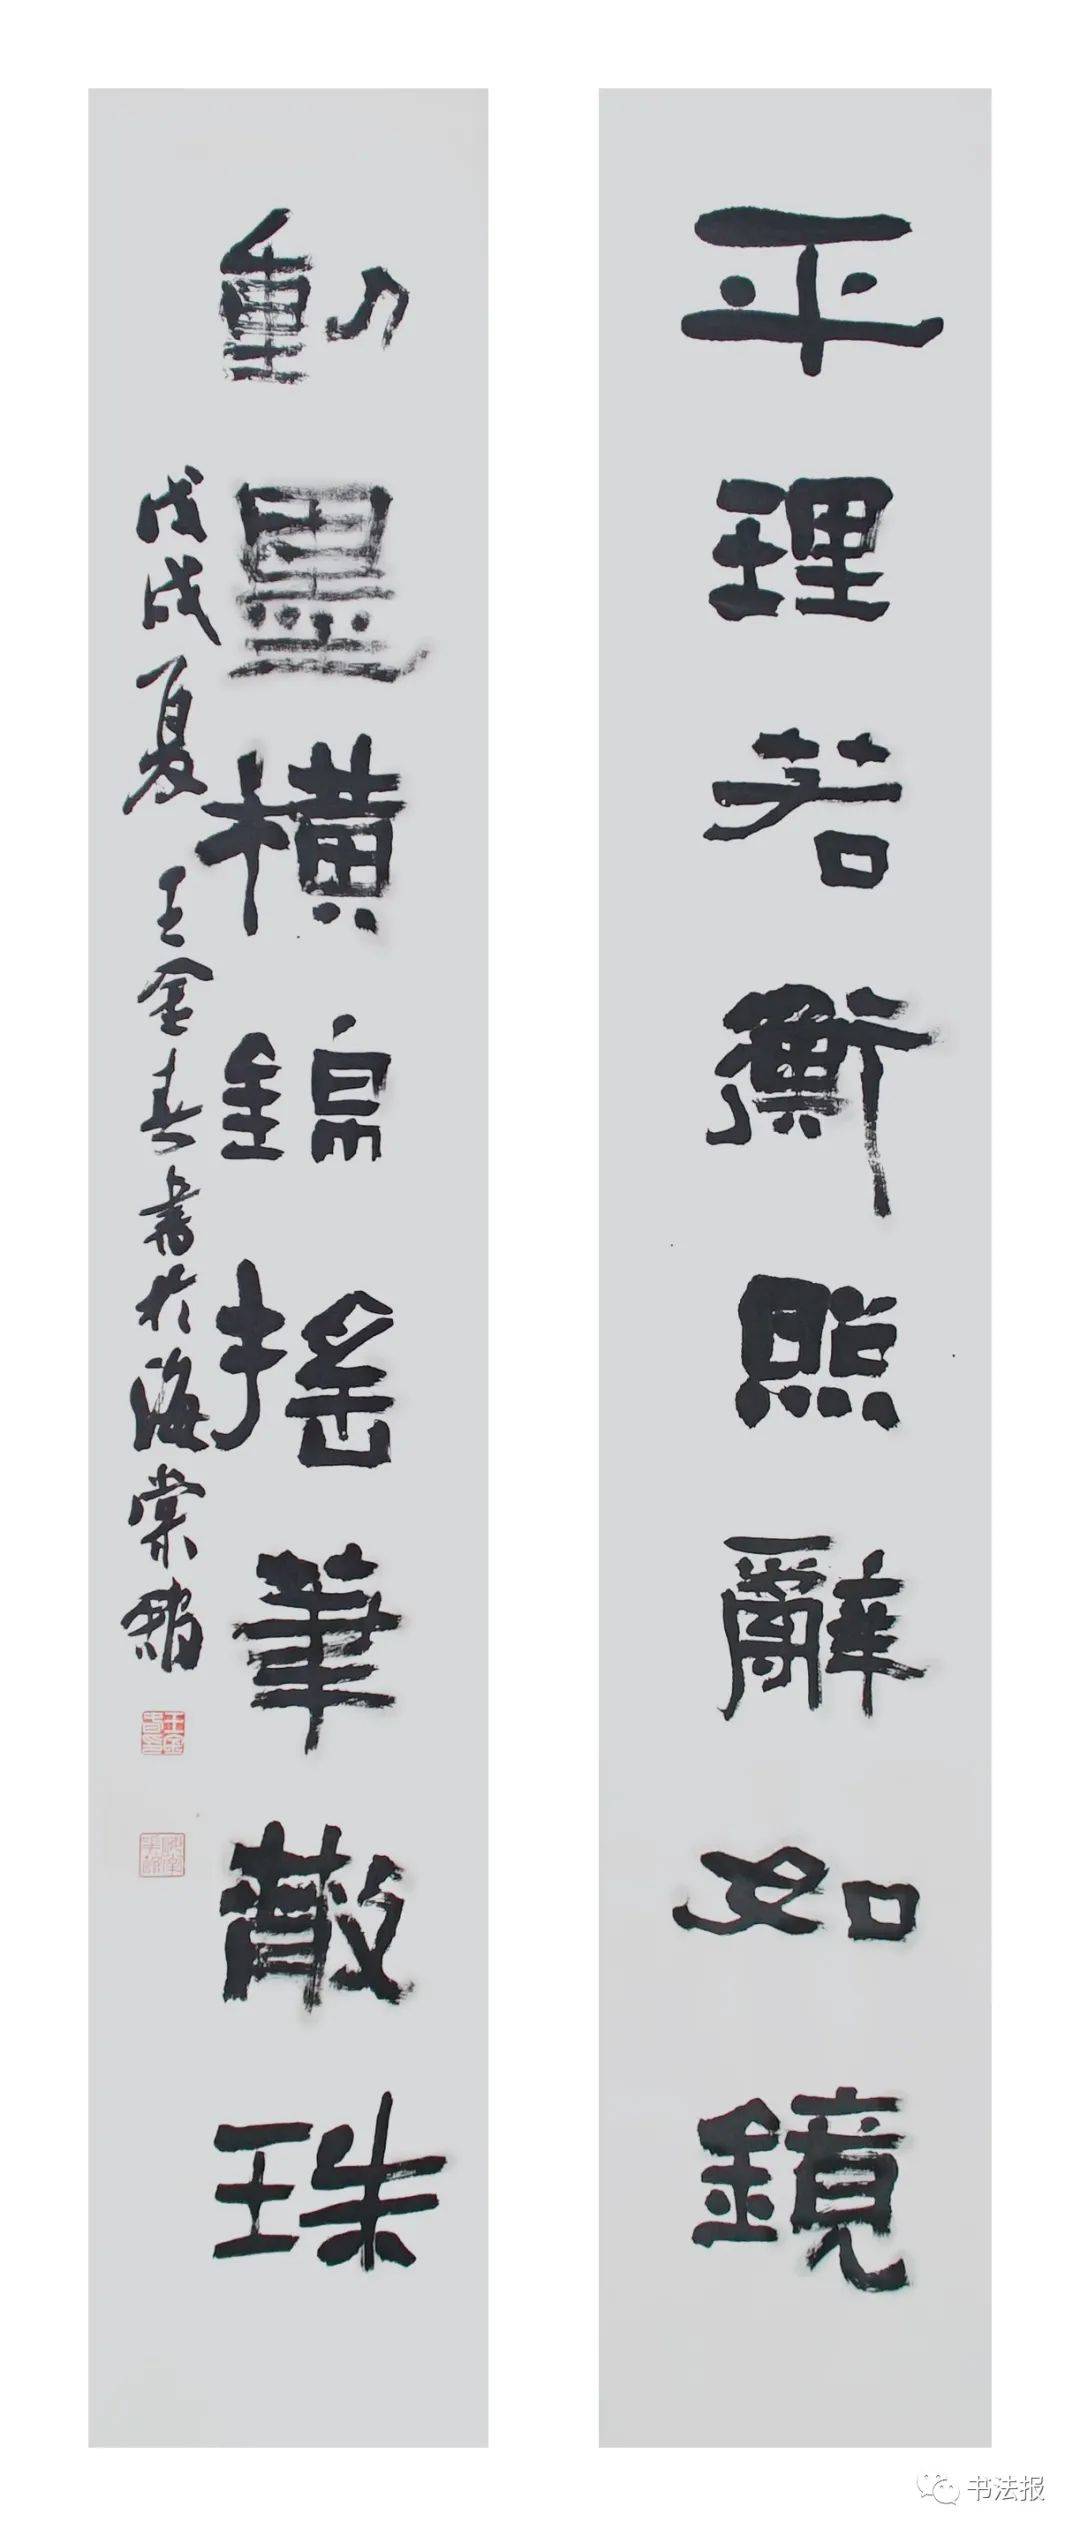 平理若衡照辭如鏡
動墨橫錦搖筆散珠
戊戌夏 王金春書於海棠館
书法报